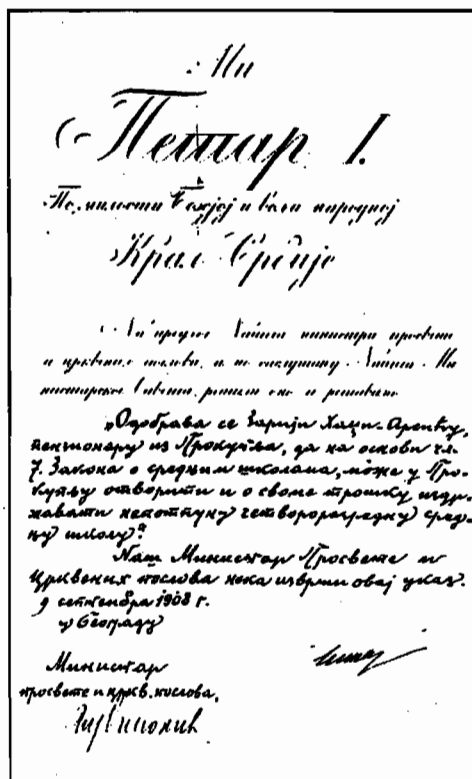 Ми
Петар I.
По милости Божјој и вољи народној
Краљ Србије
На предлог Нашег министра просвете
и црквених послова, а по саслушању Нашег Ми-
нистарског Савета, решили смо и решавамо
„Одобрава се Зарији Хаџи-Арсићу,
пензионеру из Прокупља, да на основи чл.
7. Закона о средњим школама, може у Про-
купљу отворити и о своме трошку издр-
жавати непотпуну четвороразредну сред-
њу школу.“
Наш Министар Просвете и
Црквених послова нека изврши овај указ.
9 септембра 1908 г.
у Београду
Министар
просвете и цркв. послова,